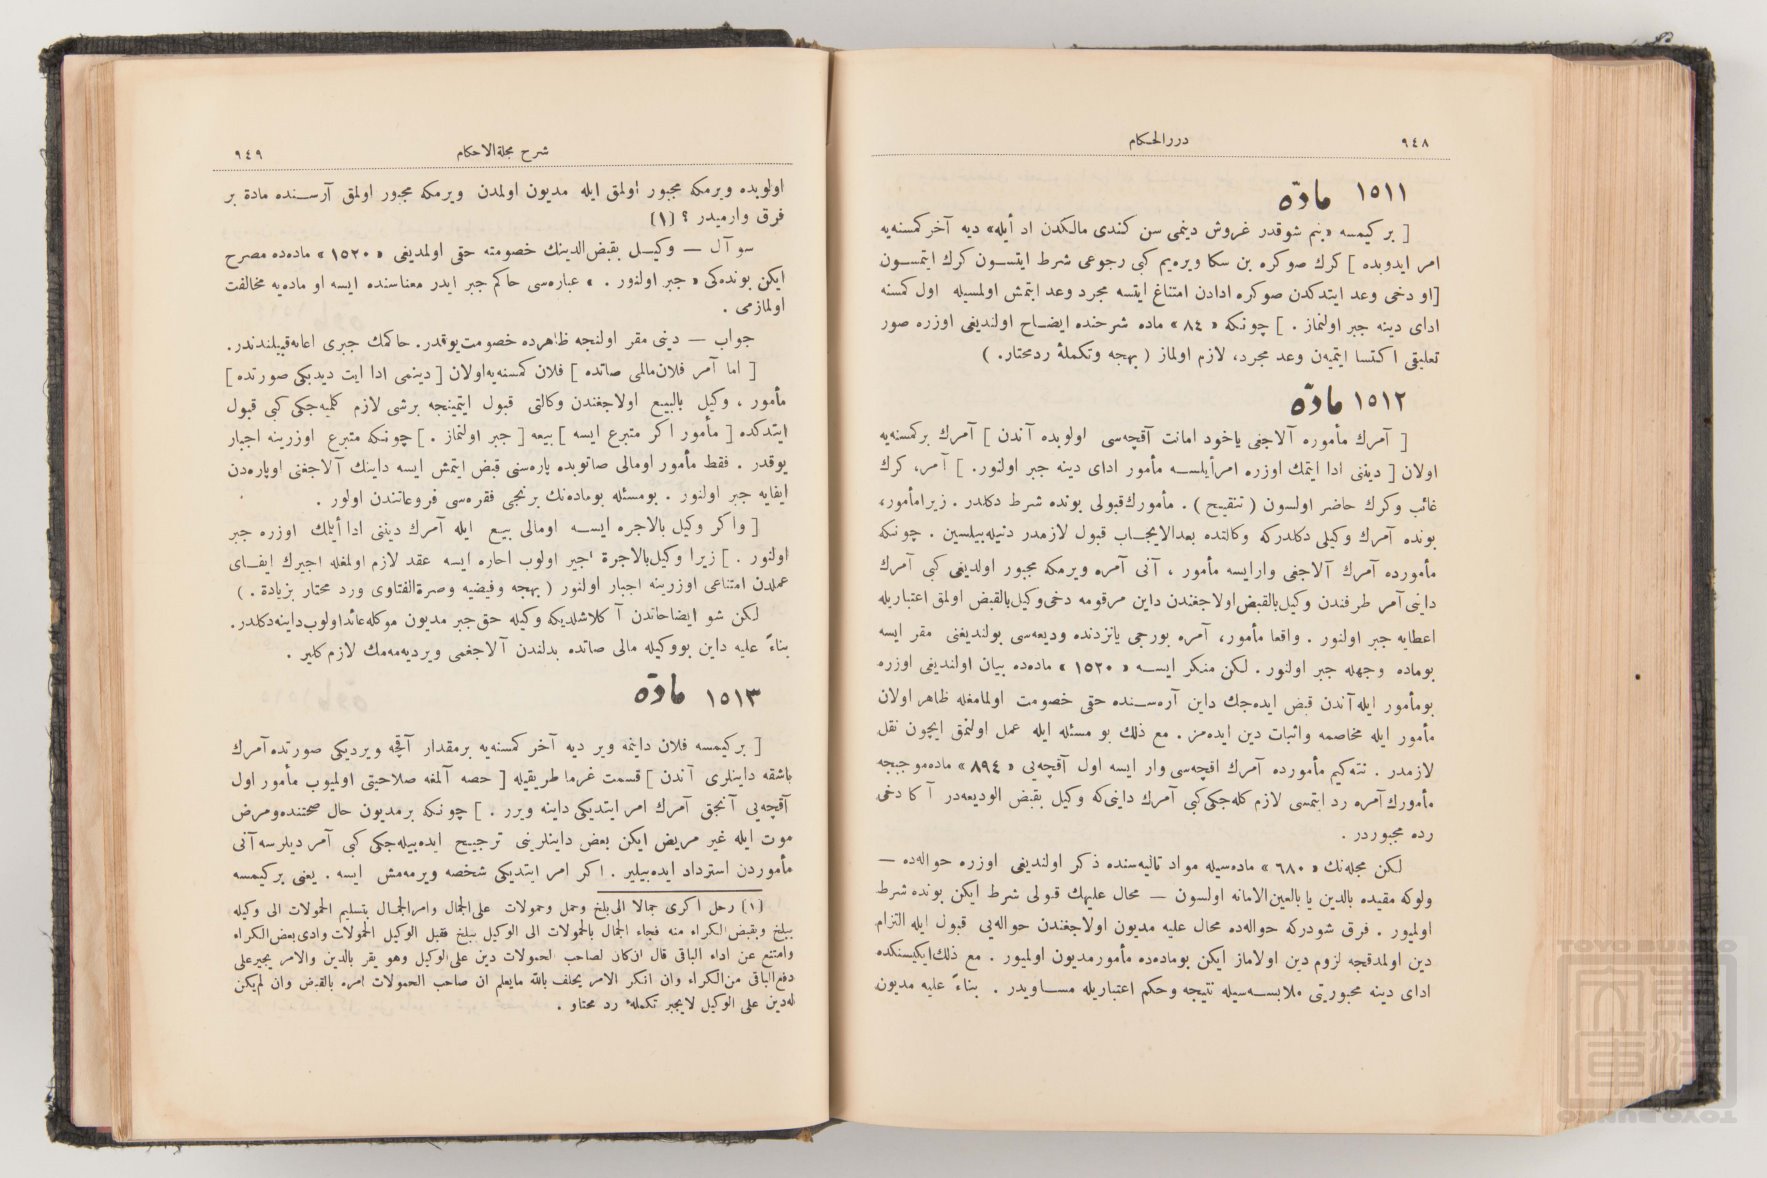 ٩٤٨
دررالحكام
١٥١١ مادّه
[ بر كيمسه «بنم شوقدر غروش دينمى سن كندى مالكدن اد أيله» ديه آخر كمسنه‌يه
امر ايدوبده ] كرك صوكره بن سكا ويره‌يم كبى رجوعى شرط ايتسون كرك ايتمسون
[او دخى وعد ايتدكدن صوكره ادادن امتناع ايتسه مجرد وعد ايتمش اولمسيله اول كمسنه
اداى دينه جبر اولنماز . ] چونكه « ٨٤ » ماده شرحنده ايضاح اولنديغى اوزره صور
تعليقى اكتسا ايتمين وعد مجرد، لازم اولماز ( بهجه وتكملۀ ردمحتار. )
١٥١٢ مادّه
[ آمرك مأموره آلاجغى ياخود امانت آقچه‌سى اولوبده آندن ] آمرك بركمسنه‌يه
اولان [ دينى ادا ايتمك اوزره امرأيلسه مأمور اداى دينه جبر اولنور. ] آمر، كرك
غائب وكرك حاضر اولسون ( تنقيح ) . مأمورك قبولى بونده شرط دكلدر . زيرامأمور،
بونده آمرك وكيلى دكلدركه وكالتده بعدالايجاب قبول لازمدر دنيله‌بيلسين . چونكه
مأمورده آمرك آلاجغى وارايسه مأمور ، آنى آمره ويرمكه مجبور اولديغى كبى آمرك
داينى آمر طرفندن وكيل بالقبض اولاجغندن داين مرقومه دخى وكيل بالقبض اولمق اعتباريله
اعطايه جبر اولنور . واقعا مأمور، آمره بورجى ياننزدنده وديعه‌سى بولنديغنى مقر ايسه
بوماده وجهله جبر اولنور . لكن منكر ايسه « ١٥٢٠ » ماده‌ده بيان اولنديغى اوزره
بومأمور ايله آندن قبض ايده‌جك داين آره‌سنده حقى خصومت اولمامغله ظاهر اولان
مأمور ايله مخاصمه واثبات دين ايده‌مز . مع ذلك بو مسئله ايله عمل اولنمق ايچون نقل
لازمدر . نته‌كيم مأمورده آمرك اقچه‌سى وار ايسه اول آقچه‌يى « ٨٩٤ » ماده‌موجبجه
مأمورك آمره رد ايتمسى لازم كله‌جكى كبى آمرك داينى‌كه وكيل بقبض الوديعه‌در آكا دخى
رده مجبوردر .
لكن مجله‌نك « ٦٨٠ » ماده‌سيله مواد تاليه‌سنده ذكر اولنديغى اوزره حواله‌ده —
ولوكه مقيده بالدين يا بالعين‌الامانه اولسون — محال عليهك قبولى شرط ايكن بونده شرط
اولميور . فرق شودركه حواله‌ده محال عليه مديون اولاجغندن حواله‌يى قبول ايله التزام
دين اولمدقجه لزوم دين اولاماز ايكن بوماده‌ده مأمورمديون اولميور . مع ذلك ايكيسنكده
اداى دينه مجبوريتى ملابسه‌سيله نتيجه وحكم اعتباريله مساويدر . بناءً عليه مديون
شرح مجلة‌الاحكام
٩٤٩
اولوبده ويرمكه مجبور اولمق ايله مديون اولمدن ويرمكه مجبور اولمق آره‌سنده مادة بر
فرق وارميدر ؟ (١)
سوآل — وكيل بقبض‌الدينك خصومته حقى اولمديغى « ١٥٢٠ » ماده‌ده مصرح
ايكن بونده‌كى « جبر اولنور . » عباره‌سى حاكم جبر ايدر معناسنده ايسه او ماده‌يه مخالفت
اولمازمى .
جواب — دينى مقر اولنجه ظاهرده خصومت‌يوقدر. حاكمك جبرى اعانه‌قبيلندندر.
[ اما آمر فلان‌مالمى صاتده ] فلان كمسنه‌يه‌اولان [ دينمى ادا ايت ديديكى صورتده ]
مأمور ، وكيل بالبيع اولاجغندن وكالتى قبول ايتمينجه برشى لازم كلميه‌جكى كبى قبول
ايتدكده [ مأمور اكر متبرع ايسه ] بيعه [ جبر اولنماز . ] چونكه متبرع اوزرينه اجبار
يوقدر . فقط مأمور اومالى صاتوبده پاره‌سنى قبض ايتمش ايسه داينك آلاجغنى اوپاره‌دن
ايفايه جبر اولنور . بومسئله بوماده‌نك برنجى فقره‌سى فروعاتندن اولور .
[ واكر وكيل بالاجره ايسه اومالى بيع ايله آمرك دينى ادا أيلمك اوزره جبر
اولنور . ] زيرا وكيل‌بالاجرة اجير اولوب اجاره ايسه عقد لازم اولمغله اجيرك ايفاى
عملدن امتناعى اوزرينه اجبار اولنور ( بهجه وفيضيه وصرة‌الفتاوى ورد محتار بزيادة . )
لكن شو ايضاحاتدن آكلاشلديكه وكيله حق‌جبر مديون موكله‌عائداولوب‌داينه‌دكلدر.
بناءً عليه داين بووكيله مالى صاتده بدلندن آلاجغمى ويرديه‌مه‌مك لازم كلير .
١٥١٣ مادّه
[ بركيمسه فلان داينمه وير ديه آخر كمسنه‌يه برمقدار آقچه ويرديكى صورتده آمرك
باشقه داينلرى آندن ] قسمت غرما طريقيله [ حصه آلمغه صلاحيتى اولميوب مأمور اول
آقچه‌يى آنجق آمرك امر ايتديكى داينه ويرر . ] چونكه برمديون حال صحتنده‌ومرض
موت ايله غير مريض ايكن بعض داينلرينى ترجيح ايده‌بيله‌جكى كبى آمر ديلرسه آنى
مأموردن استرداد ايده‌بيلير . اكر امر ايتديكى شخصه ويرمه‌مش ايسه . يعنى بركيمسه
(١) رجل اكرى جمالا الى‌بلخ وحمل وحمولات على‌الجمال وامرالجمال بتسليم الحمولات الى وكيله
ببلخ وبقبض‌الكراء منه فجاء الجمال بالحمولات الى الوكيل ببلخ فقبل الوكيل الحمولات وادى‌بعض‌الكراء
وامتنع عن اداء الباقى قال ان‌كان لصاحب الحمولات دين على‌الوكيل وهو يقر بالدين والامر يجبرعلى
دفع‌الباقى من‌الكراء وان انكر الامر يحلف بالله مايعلم ان صاحب الحمولات امره بالقبض وان لم‌يكن
له‌دين على الوكيل لايجبر تكمله‌ء رد محتاو .
TOYO BUNKO